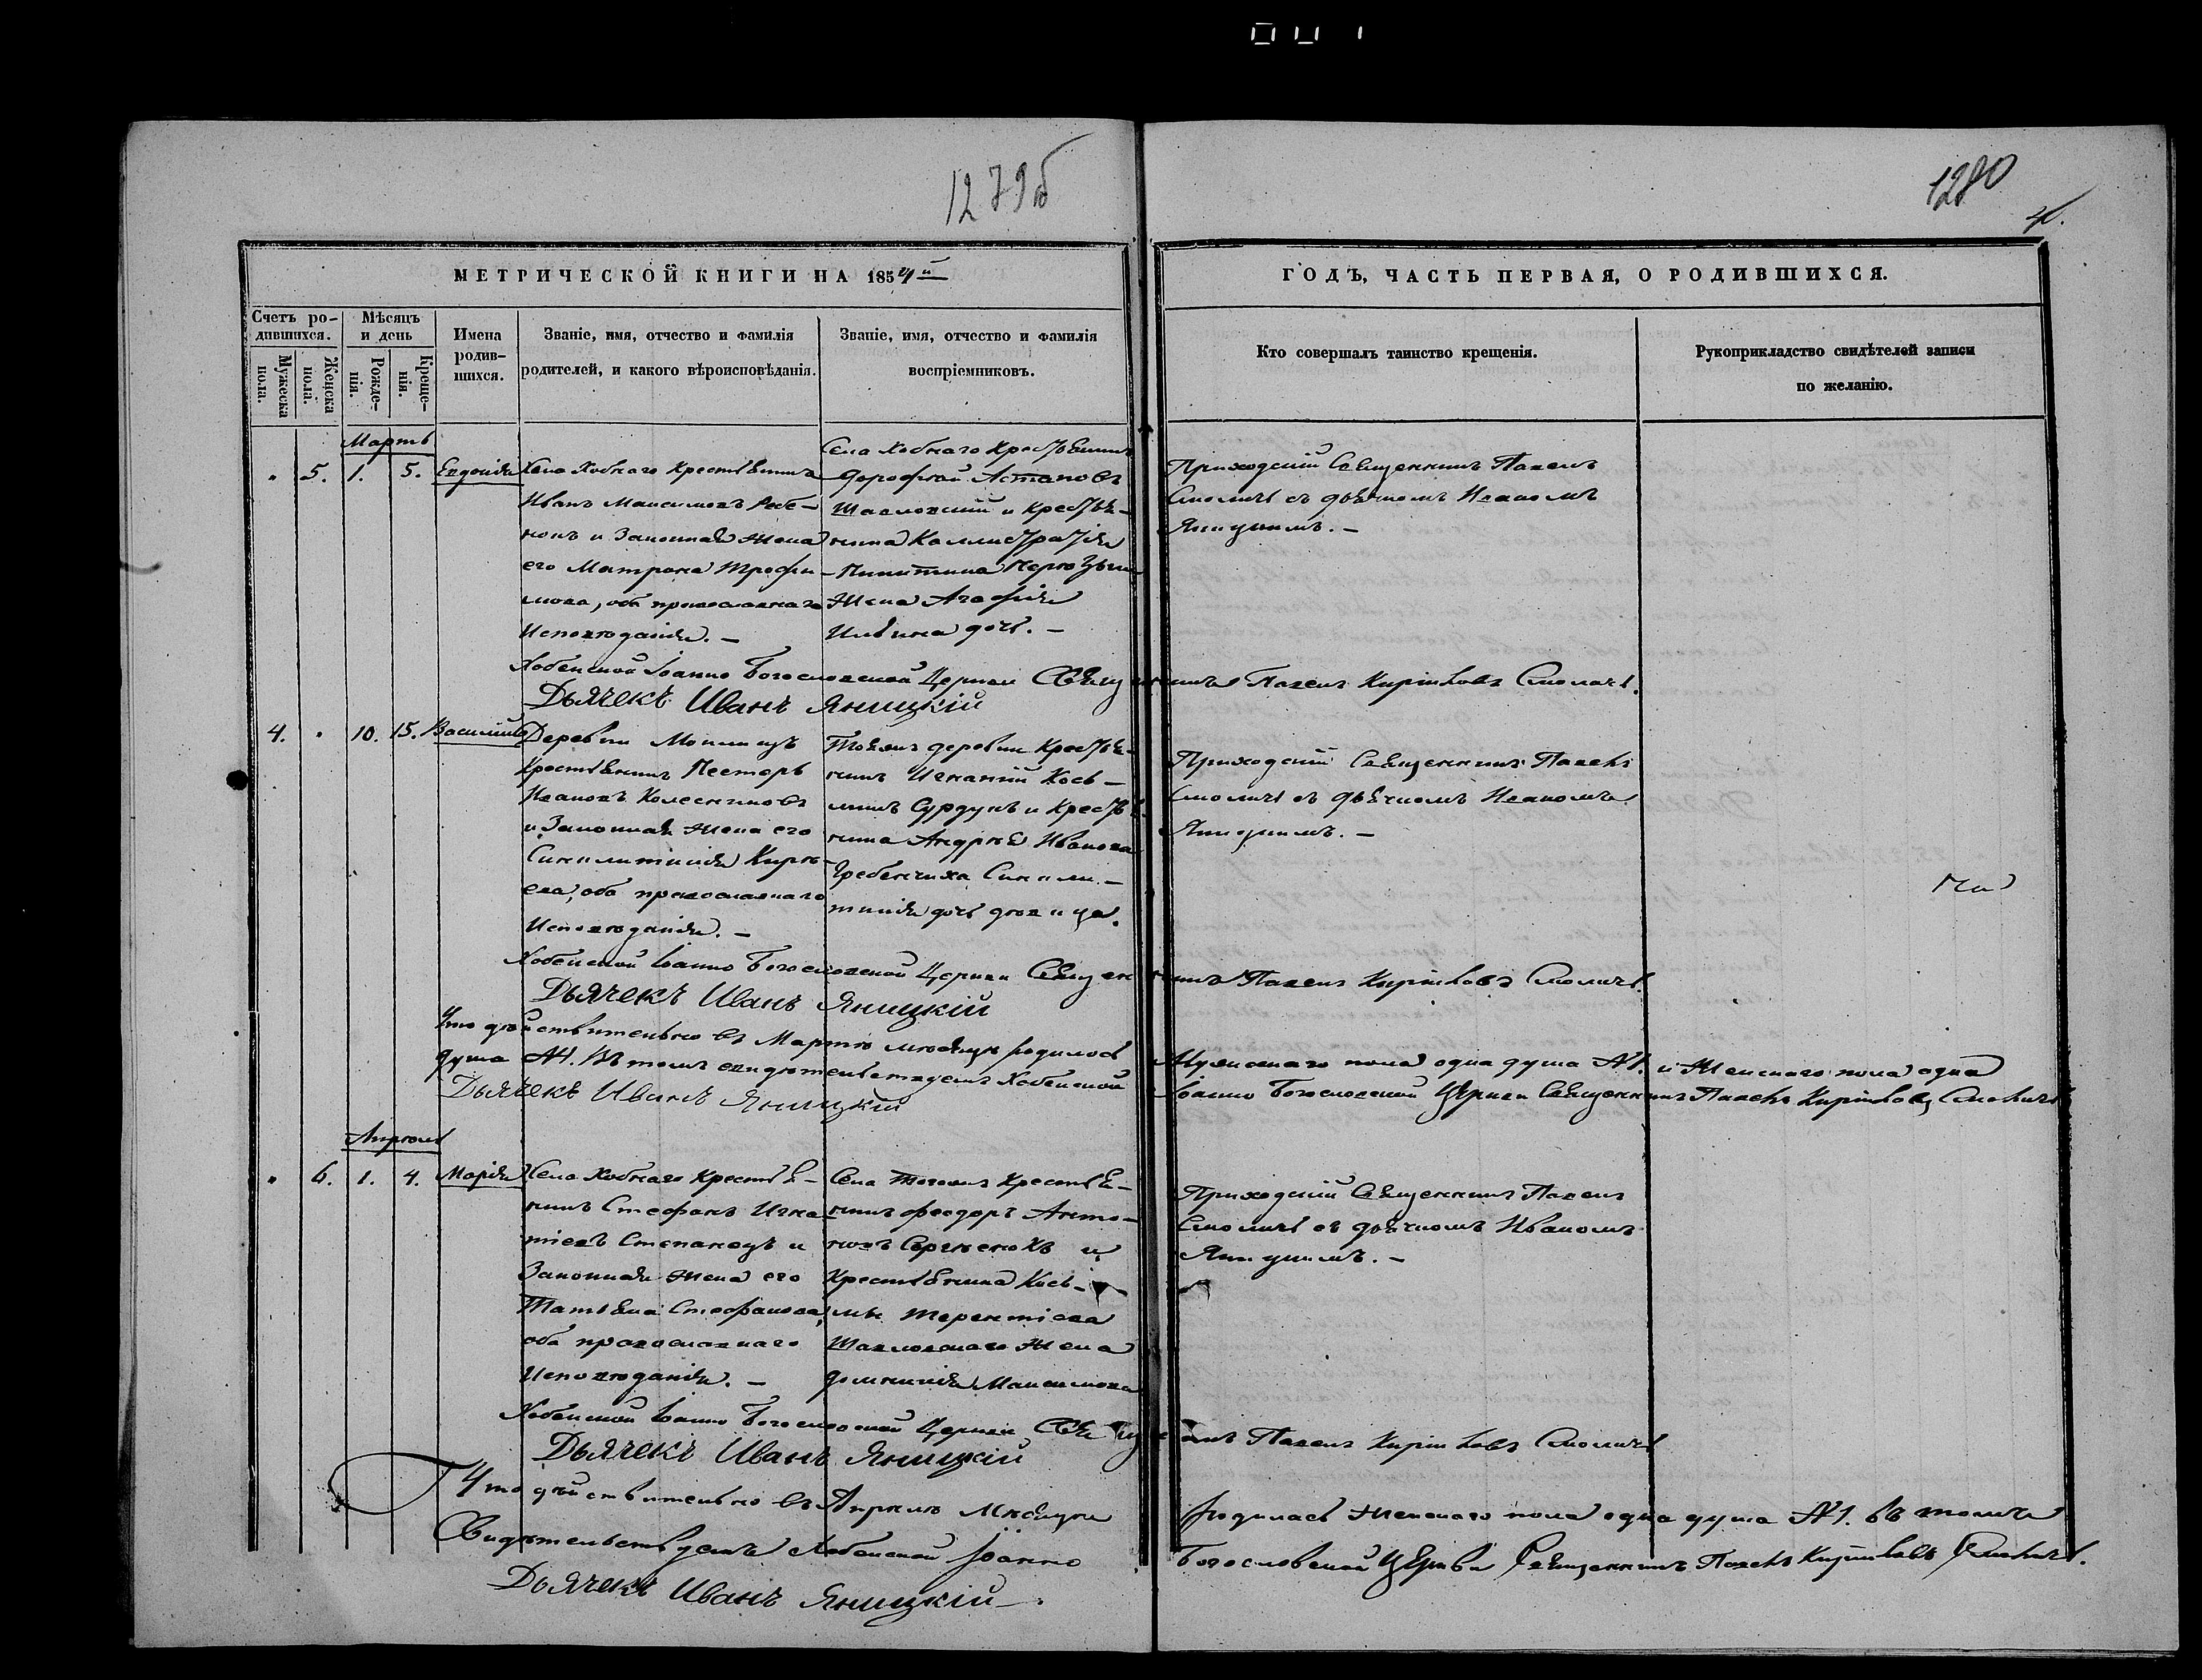 1279б
1280
МЕТРИЧЕСКОЙ КНИГИ НА 1854й
ГОДЪ, ЧАСТЬ ПЕРВАЯ, О РОДИВШИХСЯ.
Счетъ ро-
дившихся.
Мужеска
пола.
Женска
пола.
Мѣсяцъ
и день
Рожде-
нія.
Креще-
нія.
Имена
родив-
шихся.
Званіе, имя, отчество и фамилія
родителей, и какого вѣроисповѣданія.
Званіе, имя, отчество и фамилія
воспріемниковъ.
Кто совершалъ таинство крещенія.
Рукоприкладство свидѣтелей записи
по желанію.
Мартъ
" 5. 1. 5. Евдокія
Села Хобнаго Крестьянинъ
Иванъ Максимовъ
и Законная жена
его Матрона Трофи-
мова, оба православнаго
Исповѣданія. –
Села Хобнаго Крестьянинъ
Дорофей Астаповъ
Шавловскій и Крестья-
нина Каллистратія
Никитина
жена Агафія
Ильина дочь. –
Приходскій Священникъ Павелъ
Смоличъ съ дьячкомъ Иваномъ
Яницкимъ. –
Хобенской Іоанно Богословской Церкви Священникъ Павелъ Кирилловъ Смоличъ.
Дьячекъ Иванъ Яницкій
4. " 10. 15. Василій
Деревни
Крестьянинъ Несторъ
Ивановъ Колесниковъ
и Законная жена его
Синклитикія Кирѣ-
ева, оба православнаго
Исповѣданія. –
Тоежъ деревни Крестья-
нинъ Игнатій Кось-
минъ Сурдукъ и Крестья-
нина Андрея Иванова
Гребенчика Синкли-
тикія дочь дѣвица.
Приходскій Священникъ Павелъ
Смоличъ съ дьячкомъ Иваномъ
Яницкимъ. –
Хобенской Іоанно Богословской Церкви Священникъ Павелъ Кирилловъ Смоличъ.
Дьячекъ Иванъ Яницкій
Что дѣйствительно въ Мартѣ мѣсяцѣ родилось Мужескаго пола одна душа №1. и Женскаго пола одна
душа №1. Въ томъ свидѣтельствуемъ Хобенской Іоанно Богословской Церкви Священникъ Павелъ Кирилловъ Смоличъ
Дьячекъ Иванъ Яницкій
Апрѣль
" 6. 1. 4. Марія
Села Хобнаго Крестья-
нинъ Стефанъ Игна-
тіевъ Степанецъ и
Законная жена его
Татьяна Стефанова,
оба православнаго
Исповѣданія. –
Села Тогожъ Крестья-
нинъ Феодоръ Анто-
новъ Сергѣенокъ и
Крестьянина Кось-
мы Терентіева
Шавловскаго жена
Домникія Максимова
Приходскій Священникъ Павелъ
Смоличъ съ дьячкомъ Иваномъ
Яницкимъ. –
Хобенской Іоанно Богословской Церкви Священникъ Павелъ Кирилловъ Смоличъ
Дьячекъ Иванъ Яницкій
Что дѣйствительно въ Апрѣлѣ Мѣсяцѣ родилась женскаго пола одна душа №1. Въ томъ
Свидѣтельствуемъ Хобенской Іоанно Богословской Церкви Священникъ Павелъ Кирилловъ Смоличъ.
Дьячекъ Иванъ Яницкій